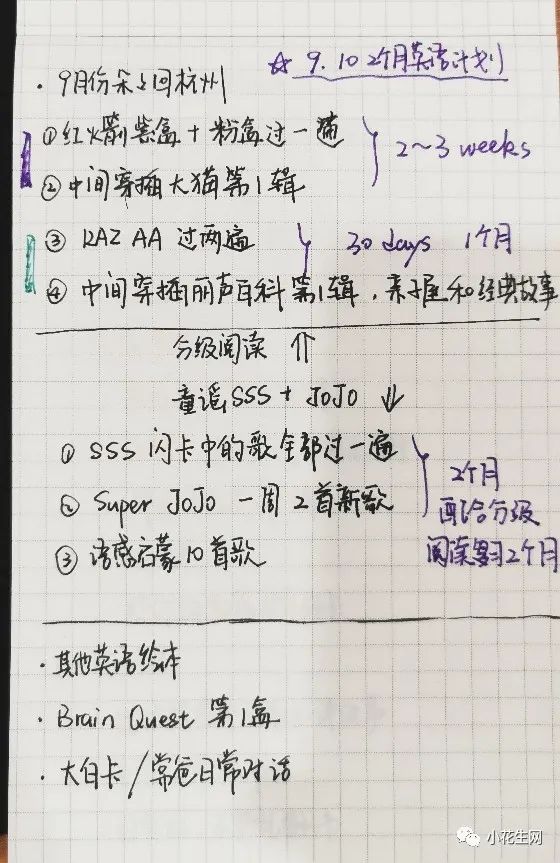 ☆ 9、10 2个月英语计划
· 9月份朵朵回杭州
①红火箭蓝盒+粉盒过一遍
2~3 weeks
②中间穿插大猫第1辑
③ RAZ AA 过两遍
30 days 1个月
④ 中间穿插丽声百科第1辑、亲子屋和经典故事
分级阅读 ⇑
童谣SSS + JoJo ↓
① SSS 闪卡中的歌全部过一遍
② Super JoJo 一周2首新歌
③ 语感启蒙10首歌
2个月
配合分级
阅读复习2个月
· 其他英语绘本
· Brain Quest 第1盒
· 大白卡/常爸日常对话
小花生网